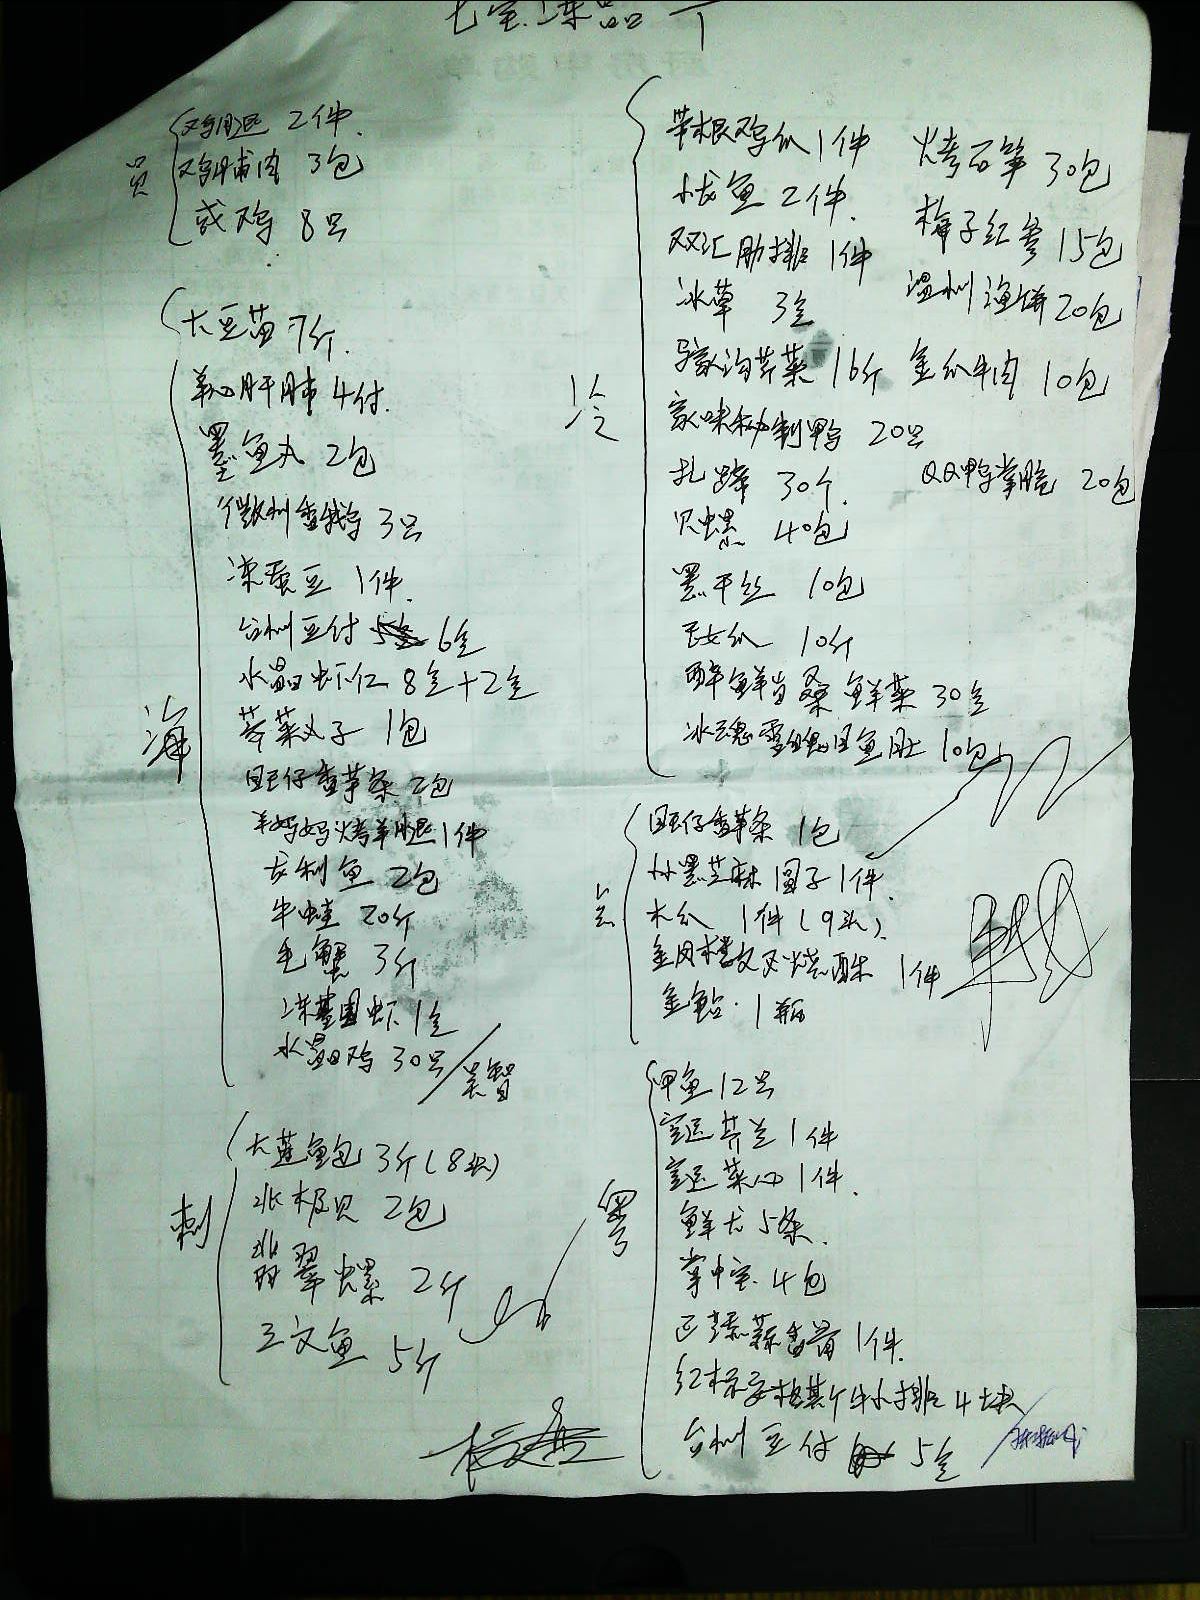 七宝冻品
员
鸡腿 2件
鸡脯肉 3包
咸鸡 8只
海
大豆苗 7斤
羊心肝肺 4付
墨鱼丸 2包
徽州香鹅 3只
冻蚕豆 1件
台州豆付 6盒
水晶虾仁 8盒+2盒
荠菜丸子 1包
旺仔香芋条 2包
羊妈妈烤羊腿 1件
龙利鱼 2包
牛蛙 20斤
毛蟹 3斤
冻基围虾 1盒
水晶鸡 30只
刺
大莲鱼包 3斤(8头)
北极贝 2包
翡翠螺 2斤
三文鱼 5斤
冷
带根鸡爪 1件
小龙鱼 2件
双汇肋排 1件
冰草 3盒
马家沟芹菜 16斤
家味秘制鸭 20只
扎蹄 30个
贝螺 40包
黑干丝 10包
毛女爪 10斤
醉鲜 鲜菜 30盒
鱼肚 10包
烤石笋 30包
梅子红参 15包
温州渔饼 20包
金爪牛肉 10包
QQ鸭掌脆 20包
点
旺仔香芋条 1包
小黑芝麻圆子 1件
木瓜 1件(9头)
金凤楼叉烧酥 1件
金钻 1瓶
粤
甲鱼 12只
空运芥兰 1件
空运菜心 1件
鲜尤 5条
掌中宝 4包
红标安格其斤牛小排 4大块
台州豆付 5盒